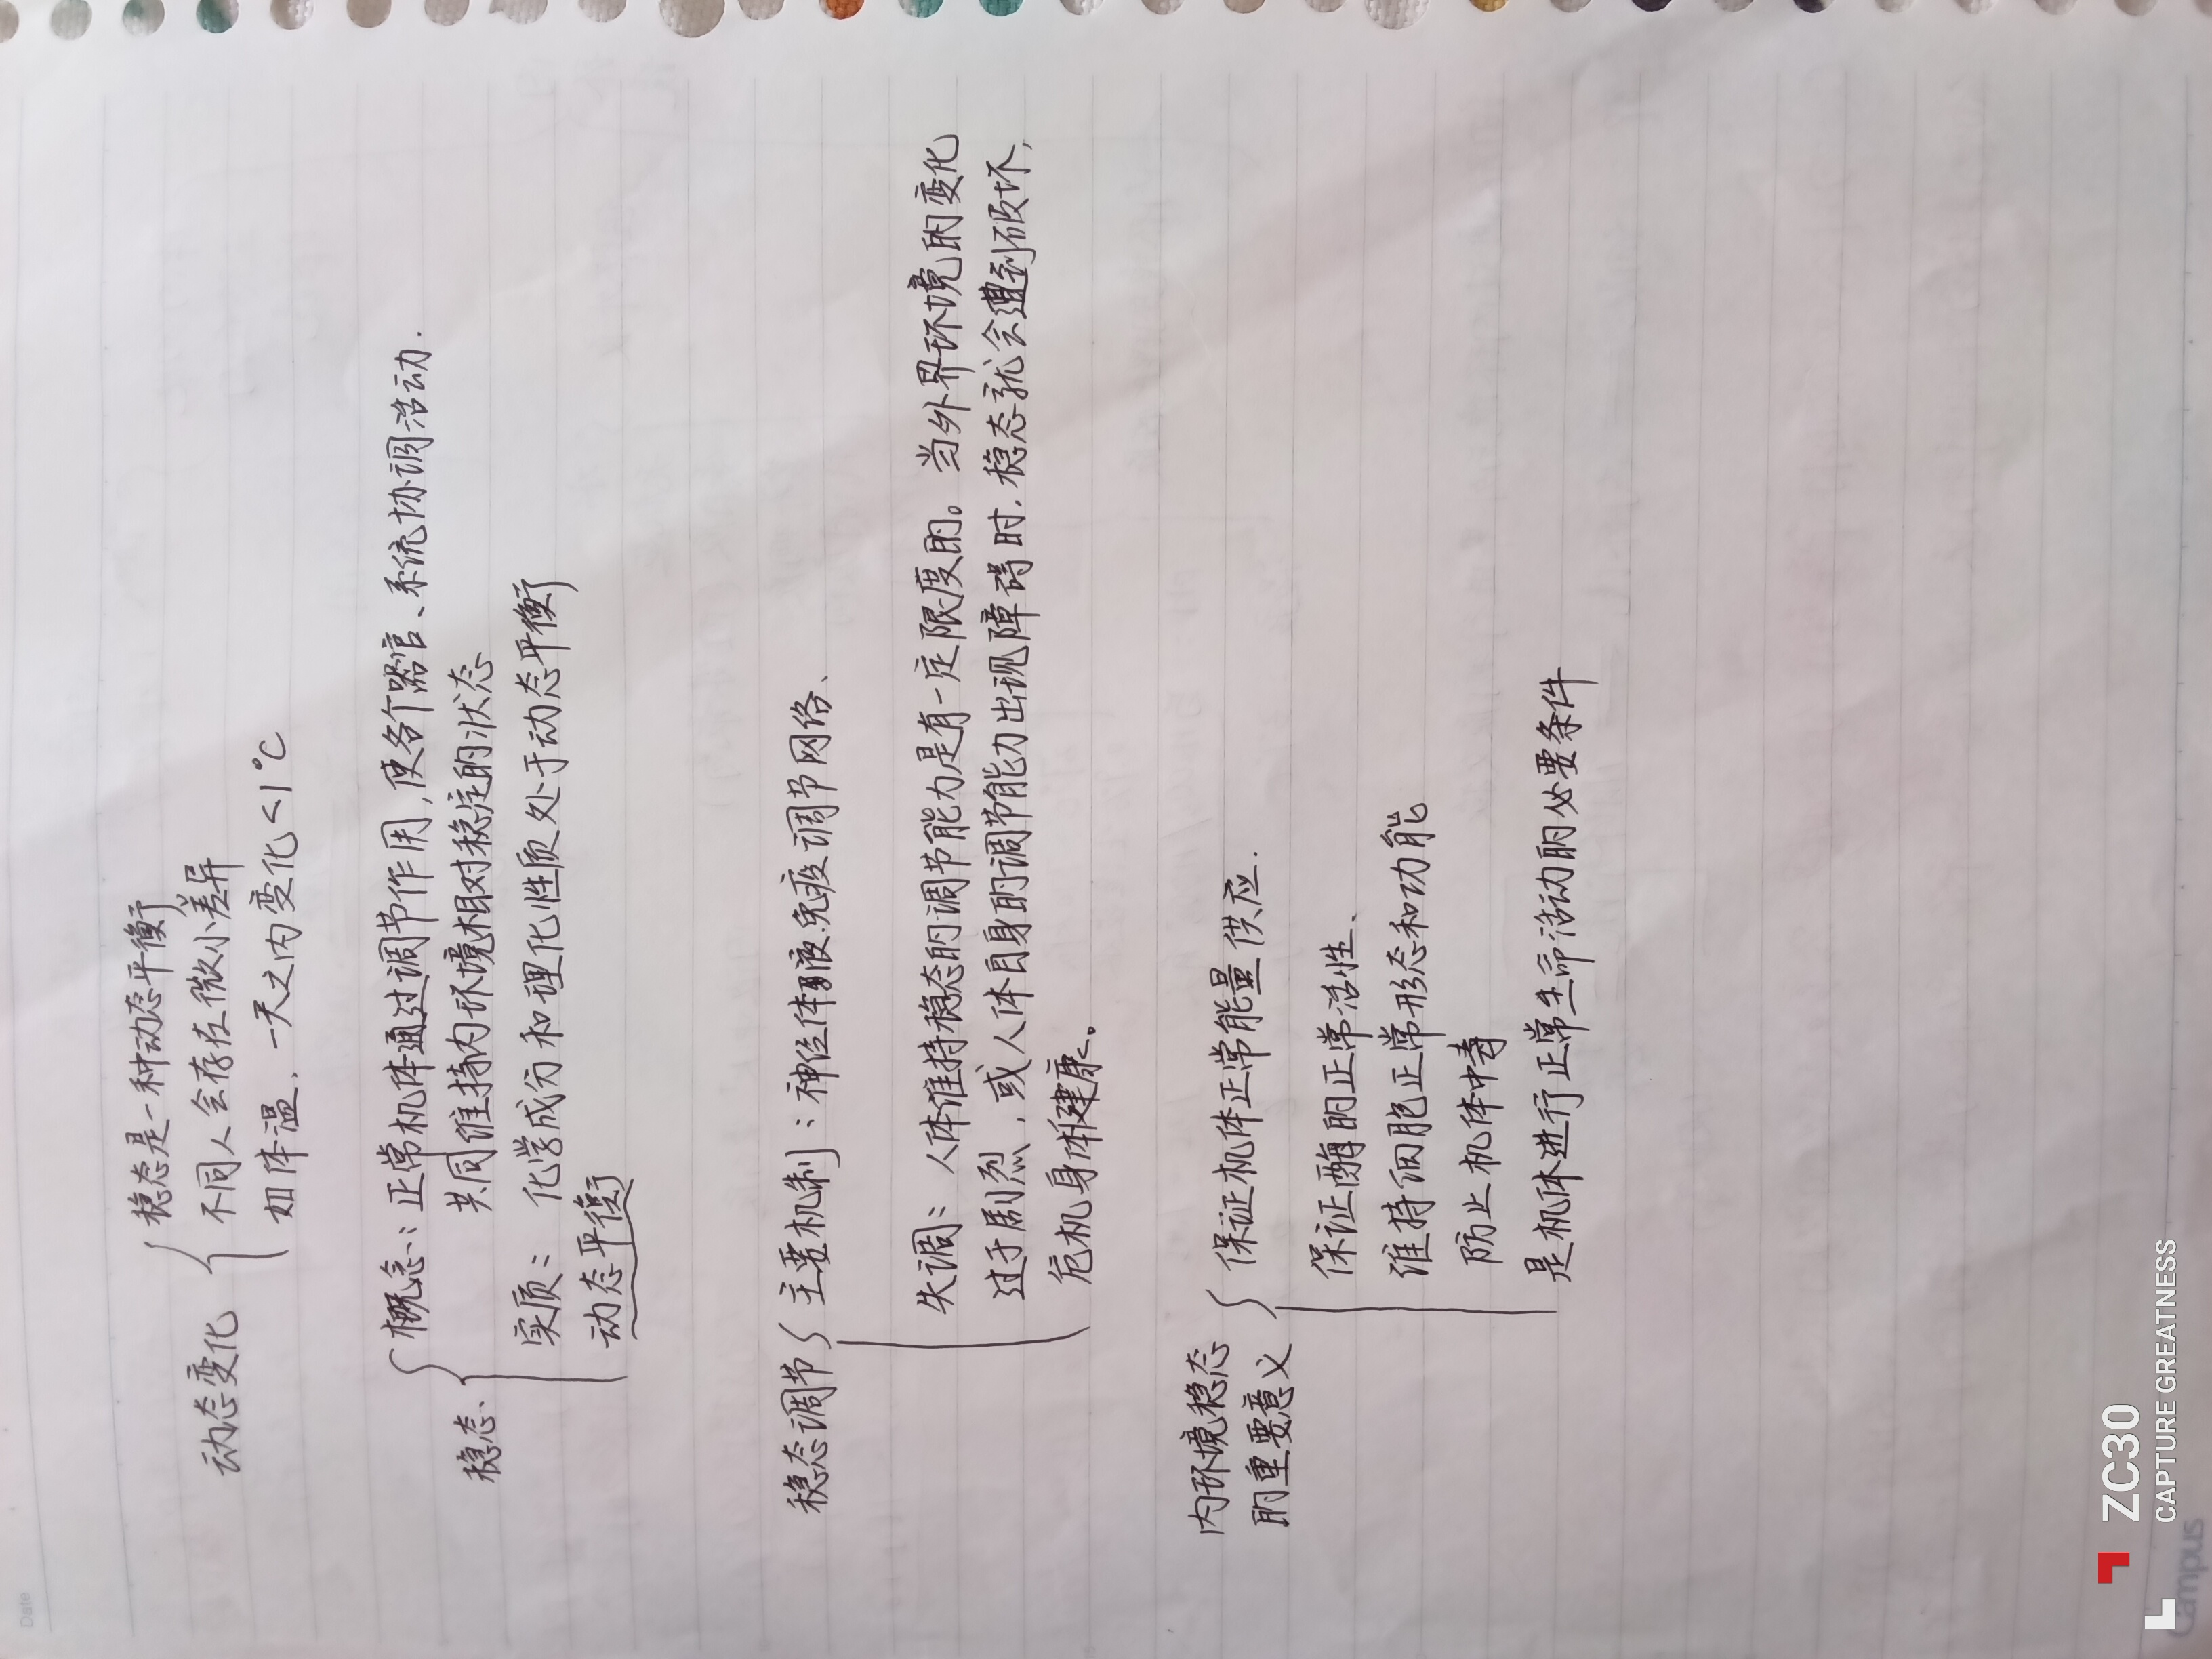 Date
稳态是一种动态平衡
动态变化 不同人会存在微小差异
如体温.一天之内变化<1℃
概念:正常机体通过调节作用,使各个器官、系统协调活动.
稳态、 共同维持内环境相对稳定的状态
实质: 化学成分和理化性质处于动态平衡
动态平衡
稳态调节 主要机制:神经体液免疫调节网络、
失调: 人体维持稳态的调节能力是有一定限度的。当外界环境的变化
过于剧烈,或人体自身的调节能力出现障碍时.稳态就会遭到破坏,
危机身体健康。
内环境稳态 保证机体正常能量供应.
的重要意义
保证酶的正常活性、
维持细胞正常形态和功能
防止机体中毒
是机体进行正常生命活动的必要条件
ZC30
CAPTURE GREATNESS
Campus